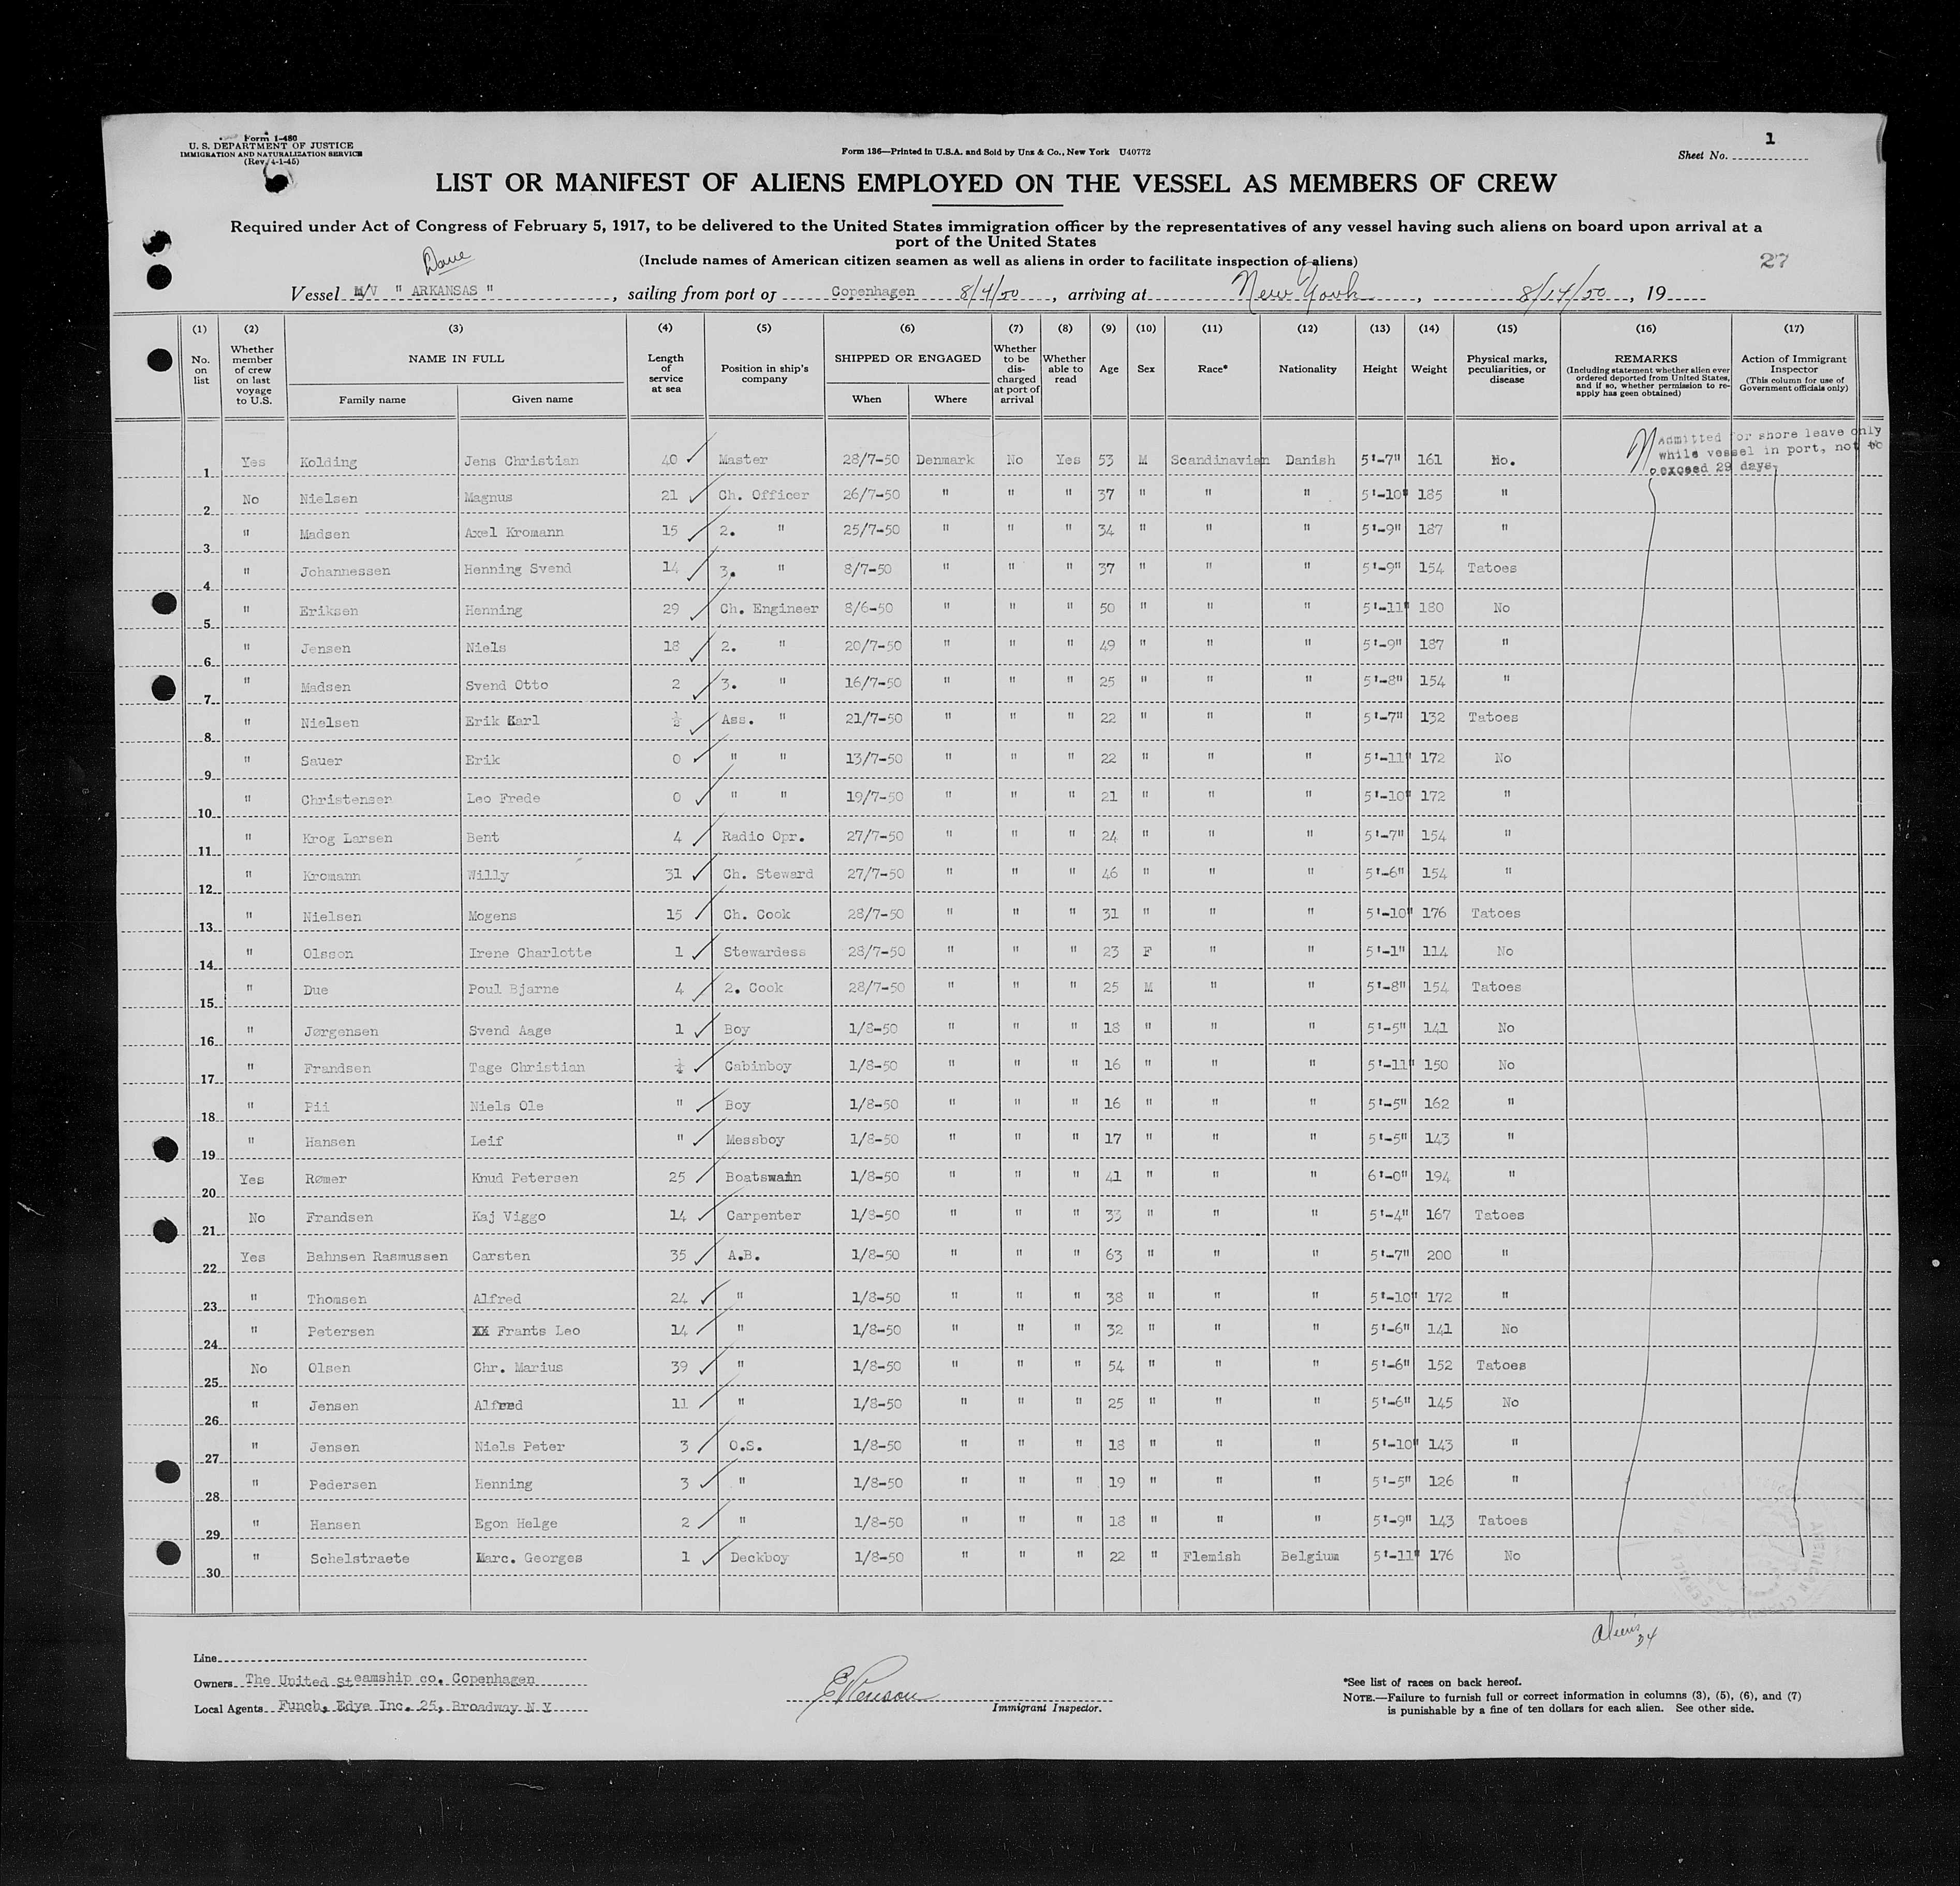 Form I-480
U. S. DEPARTMENT OF JUSTICE
IMMIGRATION AND NATURALIZATION SERVICE
(Rev. 4-1-45)
Form 136—Printed in U.S.A. and Sold by Unz & Co., New York U40772
Sheet No. 1
LIST OR MANIFEST OF ALIENS EMPLOYED ON THE VESSEL AS MEMBERS OF CREW
Required under Act of Congress of February 5, 1917, to be delivered to the United States immigration officer by the representatives of any vessel having such aliens on board upon arrival at a
port of the United States
(Include names of American citizen seamen as well as aliens in order to facilitate inspection of aliens)
27
Vessel M/V " ARKANSAS " , sailing from port of Copenhagen 8/4/50 , arriving at New York , 8/14/50 , 19
(1) (2) (3) (4) (5) (6) (7) (8) (9) (10) (11) (12) (13) (14) (15) (16) (17)
No. on list Whether member of crew on last voyage to U.S. NAME IN FULL Family name Given name Length of service at sea Position in ship's company SHIPPED OR ENGAGED When Where Whether to be discharged at port of arrival Whether able to read Age Sex Race* Nationality Height Weight Physical marks, peculiarities, or disease REMARKS (Including statement whether alien ever ordered deported from United States, and if so, whether permission to re-apply has geen obtained) Action of Immigrant Inspector (This column for use of Government officials only)
Admitted for shore leave only
while vessel in port, not to
exceed 29 days
1 Yes Kolding Jens Christian 40 Master 28/7-50 Denmark No Yes 53 M Scandinavian Danish 5'-7" 161 No.
2 No Nielsen Magnus 21 Ch. Officer 26/7-50 " " " 37 " " " 5'-10" 185 "
3 " Madsen Axel Kromann 15 2. " 25/7-50 " " " 34 " " " 5'-9" 187 "
4 " Johannessen Henning Svend 14 3. " 8/7-50 " " " 37 " " " 5'-9" 154 Tatoes
5 " Eriksen Henning 29 Ch. Engineer 8/6-50 " " " 50 " " " 5'-11" 180 No
6 " Jensen Niels 18 2. " 20/7-50 " " " 49 " " " 5'-9" 187 "
7 " Madsen Svend Otto 2 3. " 16/7-50 " " " 25 " " " 5'-8" 154 "
8 " Nielsen Erik Karl ½ Ass. " 21/7-50 " " " 22 " " " 5'-7" 132 Tatoes
9 " Sauer Erik 0 " " 13/7-50 " " " 22 " " " 5'-11" 172 No
10 " Christensen Leo Frede 0 " " 19/7-50 " " " 21 " " " 5'-10" 172 "
11 " Krog Larsen Bent 4 Radio Opr. 27/7-50 " " " 24 " " " 5'-7" 154 "
12 " Kromann Willy 31 Ch. Steward 27/7-50 " " " 46 " " " 5'-6" 154 "
13 " Nielsen Mogens 15 Ch. Cook 28/7-50 " " " 31 " " " 5'-10" 176 Tatoes
14 " Olsson Irene Charlotte 1 Stewardess 28/7-50 " " " 23 F " " 5'-1" 114 No
15 " Due Poul Bjarne 4 2. Cook 28/7-50 " " " 25 M " " 5'-8" 154 Tatoes
16 " Jørgensen Svend Aage 1 Boy 1/8-50 " " " 18 " " " 5'-5" 141 No
17 " Frandsen Tage Christian Cabinboy 1/8-50 " " " 16 " " " 5'-11" 150 No
18 " Pii Niels Ole " Boy 1/8-50 " " " 16 " " " 5'-5" 162 "
19 " Hansen Leif " Messboy 1/8-50 " " " 17 " " " 5'-5" 143 "
20 Yes Rømer Knud Petersen 25 Boatswain 1/8-50 " " " 41 " " " 6'-0" 194 "
21 No Frandsen Kaj Viggo 14 Carpenter 1/8-50 " " " 33 " " " 5'-4" 167 Tatoes
22 Yes Bahnsen Rasmussen Carsten 35 A.B. 1/8-50 " " " 63 " " " 5'-7" 200 "
23 " Thomsen Alfred 24 " 1/8-50 " " " 38 " " " 5'-10" 172 "
24 " Petersen Frants Leo 14 " 1/8-50 " " " 32 " " " 5'-6" 141 No
25 No Olsen Chr. Marius 39 " 1/8-50 " " " 54 " " " 5'-6" 152 Tatoes
26 " Jensen Alfred 11 " 1/8-50 " " " 25 " " " 5'-6" 145 No
27 " Jensen Niels Peter 3 O.S. 1/8-50 " " " 18 " " " 5'-10" 143 "
28 " Pedersen Henning 3 " 1/8-50 " " " 19 " " " 5'-5" 126 "
29 " Hansen Egon Helge 2 " 1/8-50 " " " 18 " " " 5'-9" 143 Tatoes
30 " Schelstraete Marc. Georges 1 Deckboy 1/8-50 " " " 22 " Flemish Belgium 5'-11" 176 No
Aliens 34
Line
Owners The United Steamship co. Copenhagen
Local Agents Funch, Edye Inc. 25, Broadway N Y
Immigrant Inspector.
*See list of races on back hereof.
NOTE.—Failure to furnish full or correct information in columns (3), (5), (6), and (7)
is punishable by a fine of ten dollars for each alien. See other side.